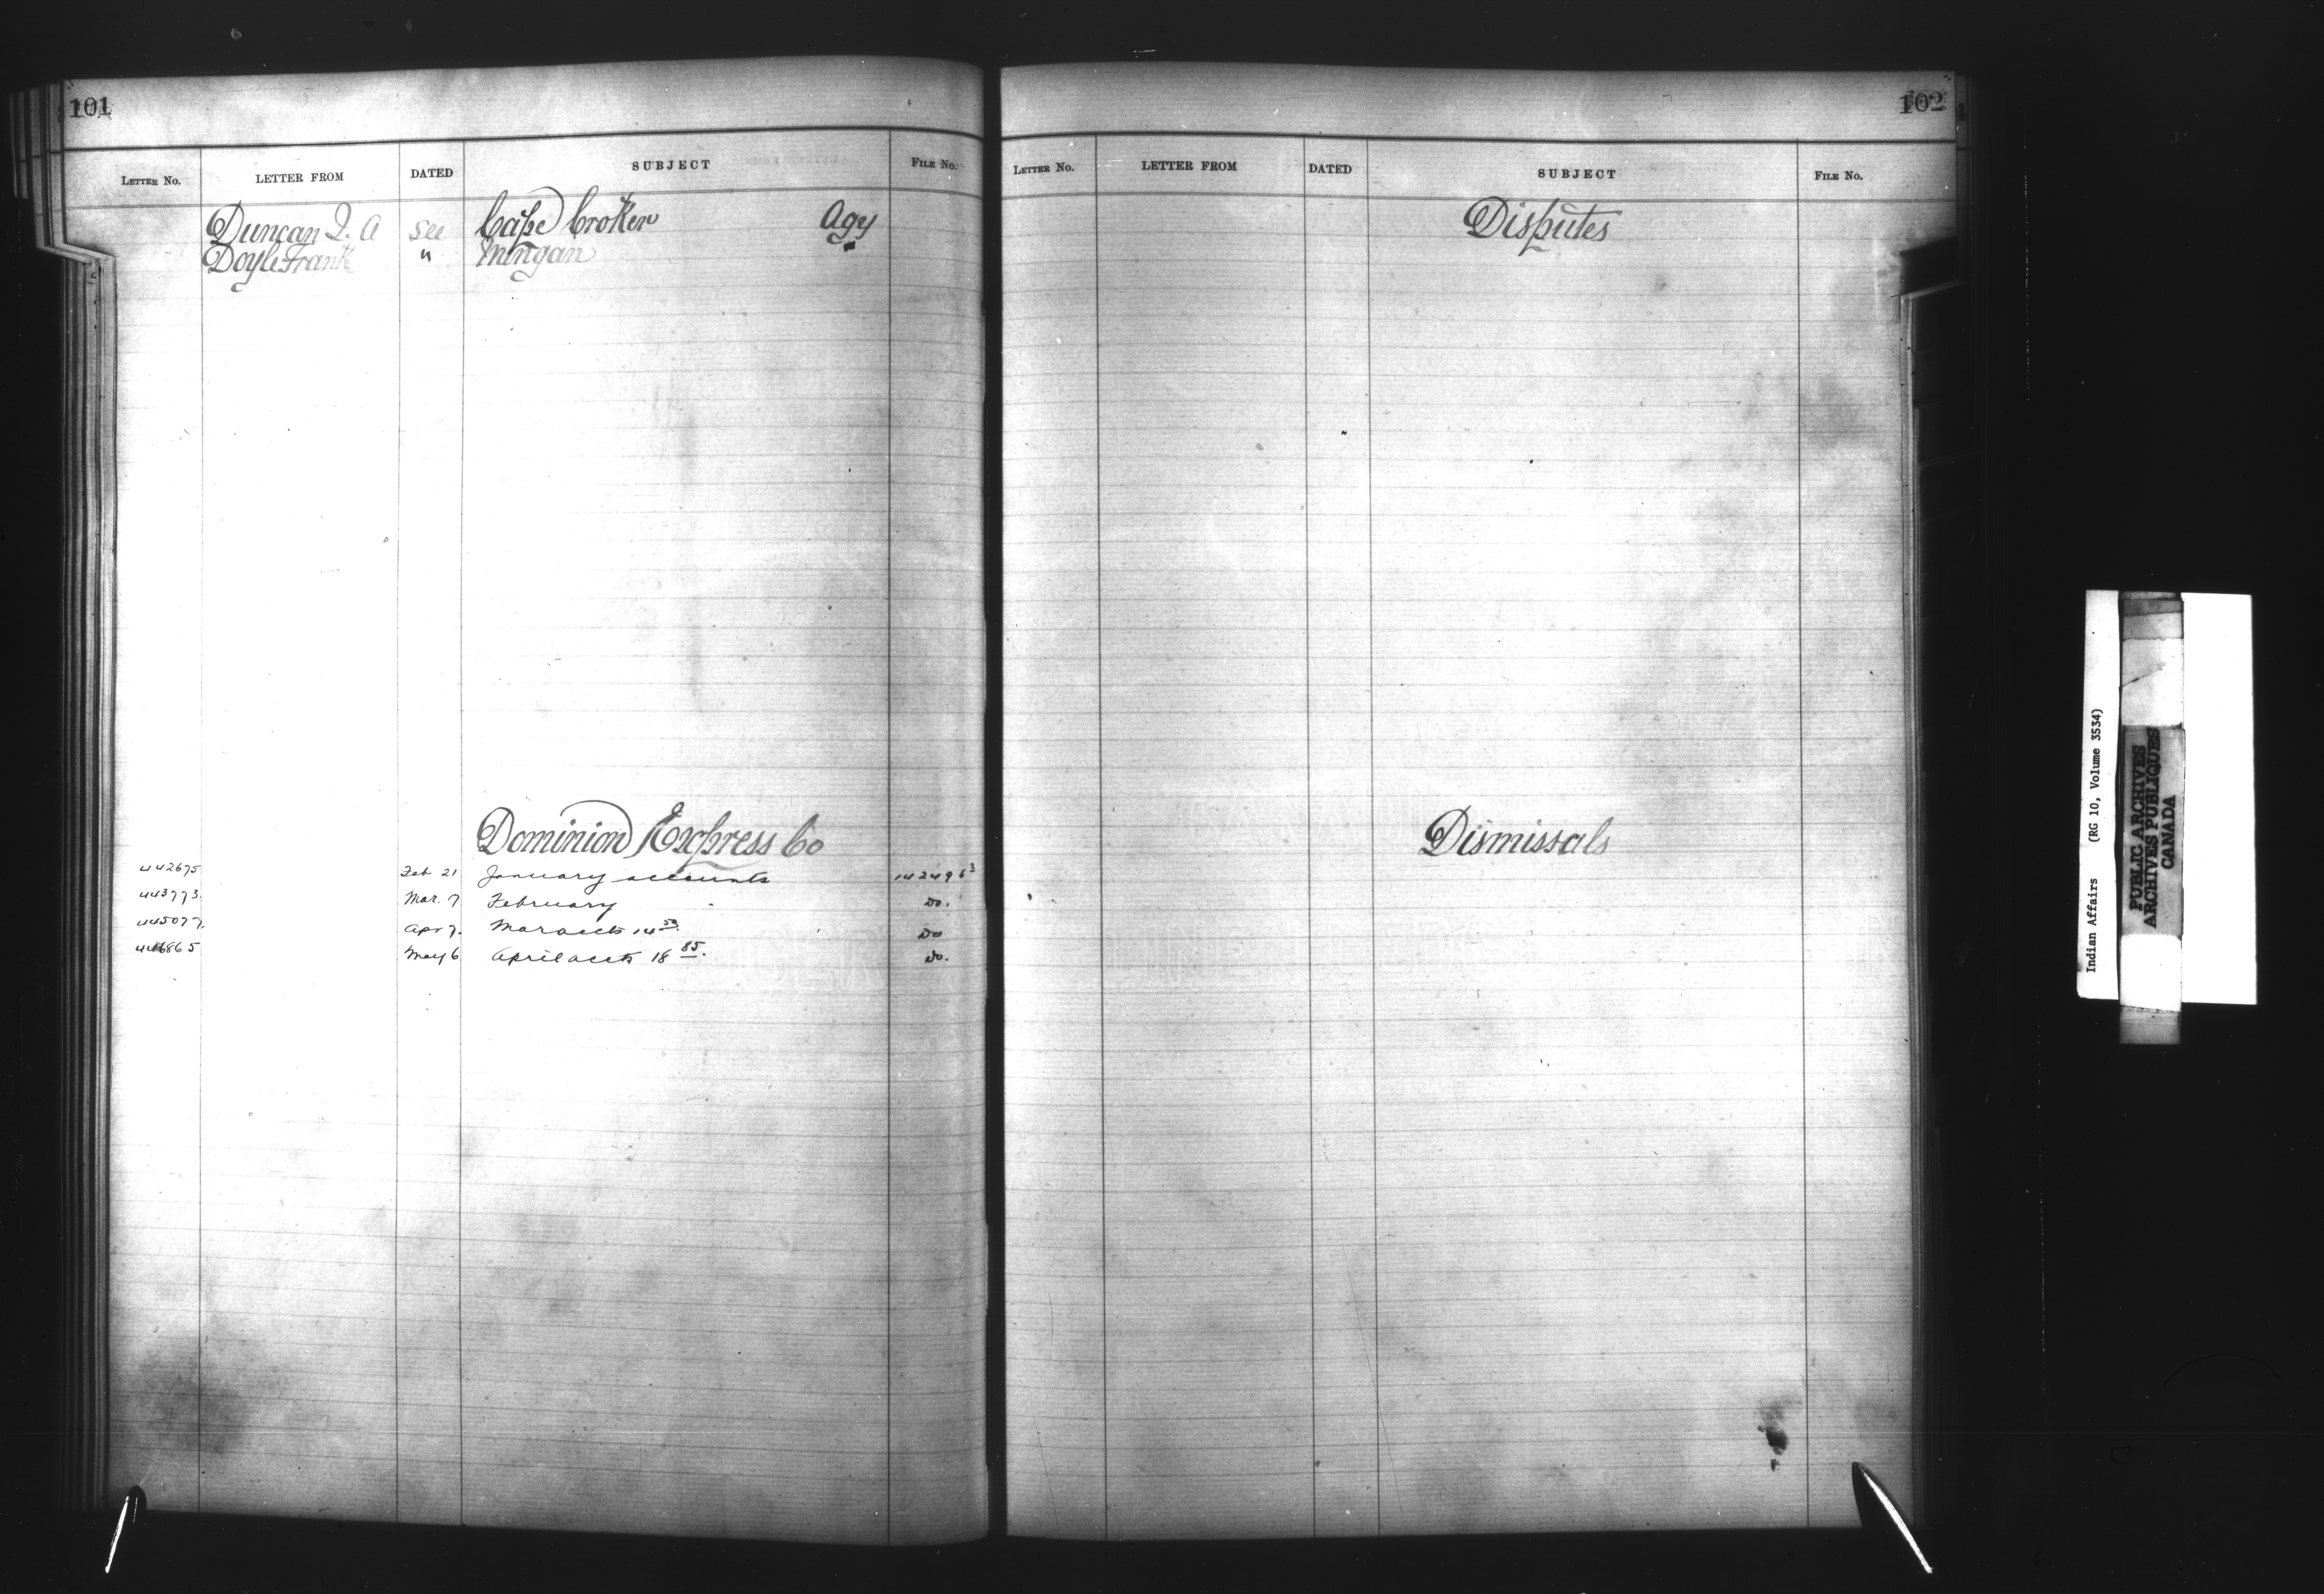 101
LETTER No. LETTER FROM DATED SUBJECT FILE No.
Duncan J. A See Cape Croker Agy
Doyle Frank " Mingan "
Dominion Express Co
442675 Feb 21 January accounts 142496³
443773. Mar. 7 February " Do.
445077. Apr 7. Mar accts 14 50. Do
446865 May 6 April accts 18 85. Do.
102
LETTER No. LETTER FROM DATED SUBJECT FILE No.
Disputes
Dismissals
Indian Affairs (RG 10, Volume 3534)
PUBLIC ARCHIVES
ARCHIVES PUBLIQUES
CANADA